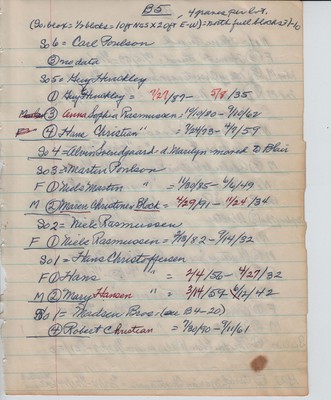 B5, 4 graves per lot.
(So. blox = ½ blocks = 10 ft N&S x 20 ft E-W) = north full blocks
So 6 = Carl Poulson
② no data
So 5 = Guy Hinckley
① Guy Hinckley = 7/27/87 - 5/8/35
③ Anna Sophia Rasmussen = 10/19/80 - 9/10/62
④ Hans Christian " = 7/24/73 - 4/9/59
So 4 = Alvin Svendgaard & Marilyn - moved to Blair
So 3 = Martin Poulson
F ① Niels Morten " = 11/20/85 - 6/6/49
M ② Maren Christine Block = 4/29/91 - 4/24/34
So 2 = Niels Rasmussen
F ① Niels Rasmussen = 9/12/82 - 9/14/32
So 1 = Hans Christoffersen
F ① Hans " = 2/4/56 - 4/27/32
M ② Mary Hansen " = 3/14/59 6/12/42
So 1 = Madsen Bros. (see B4-20)
④ Robert Christian = 7/20/90 - 7/11/61